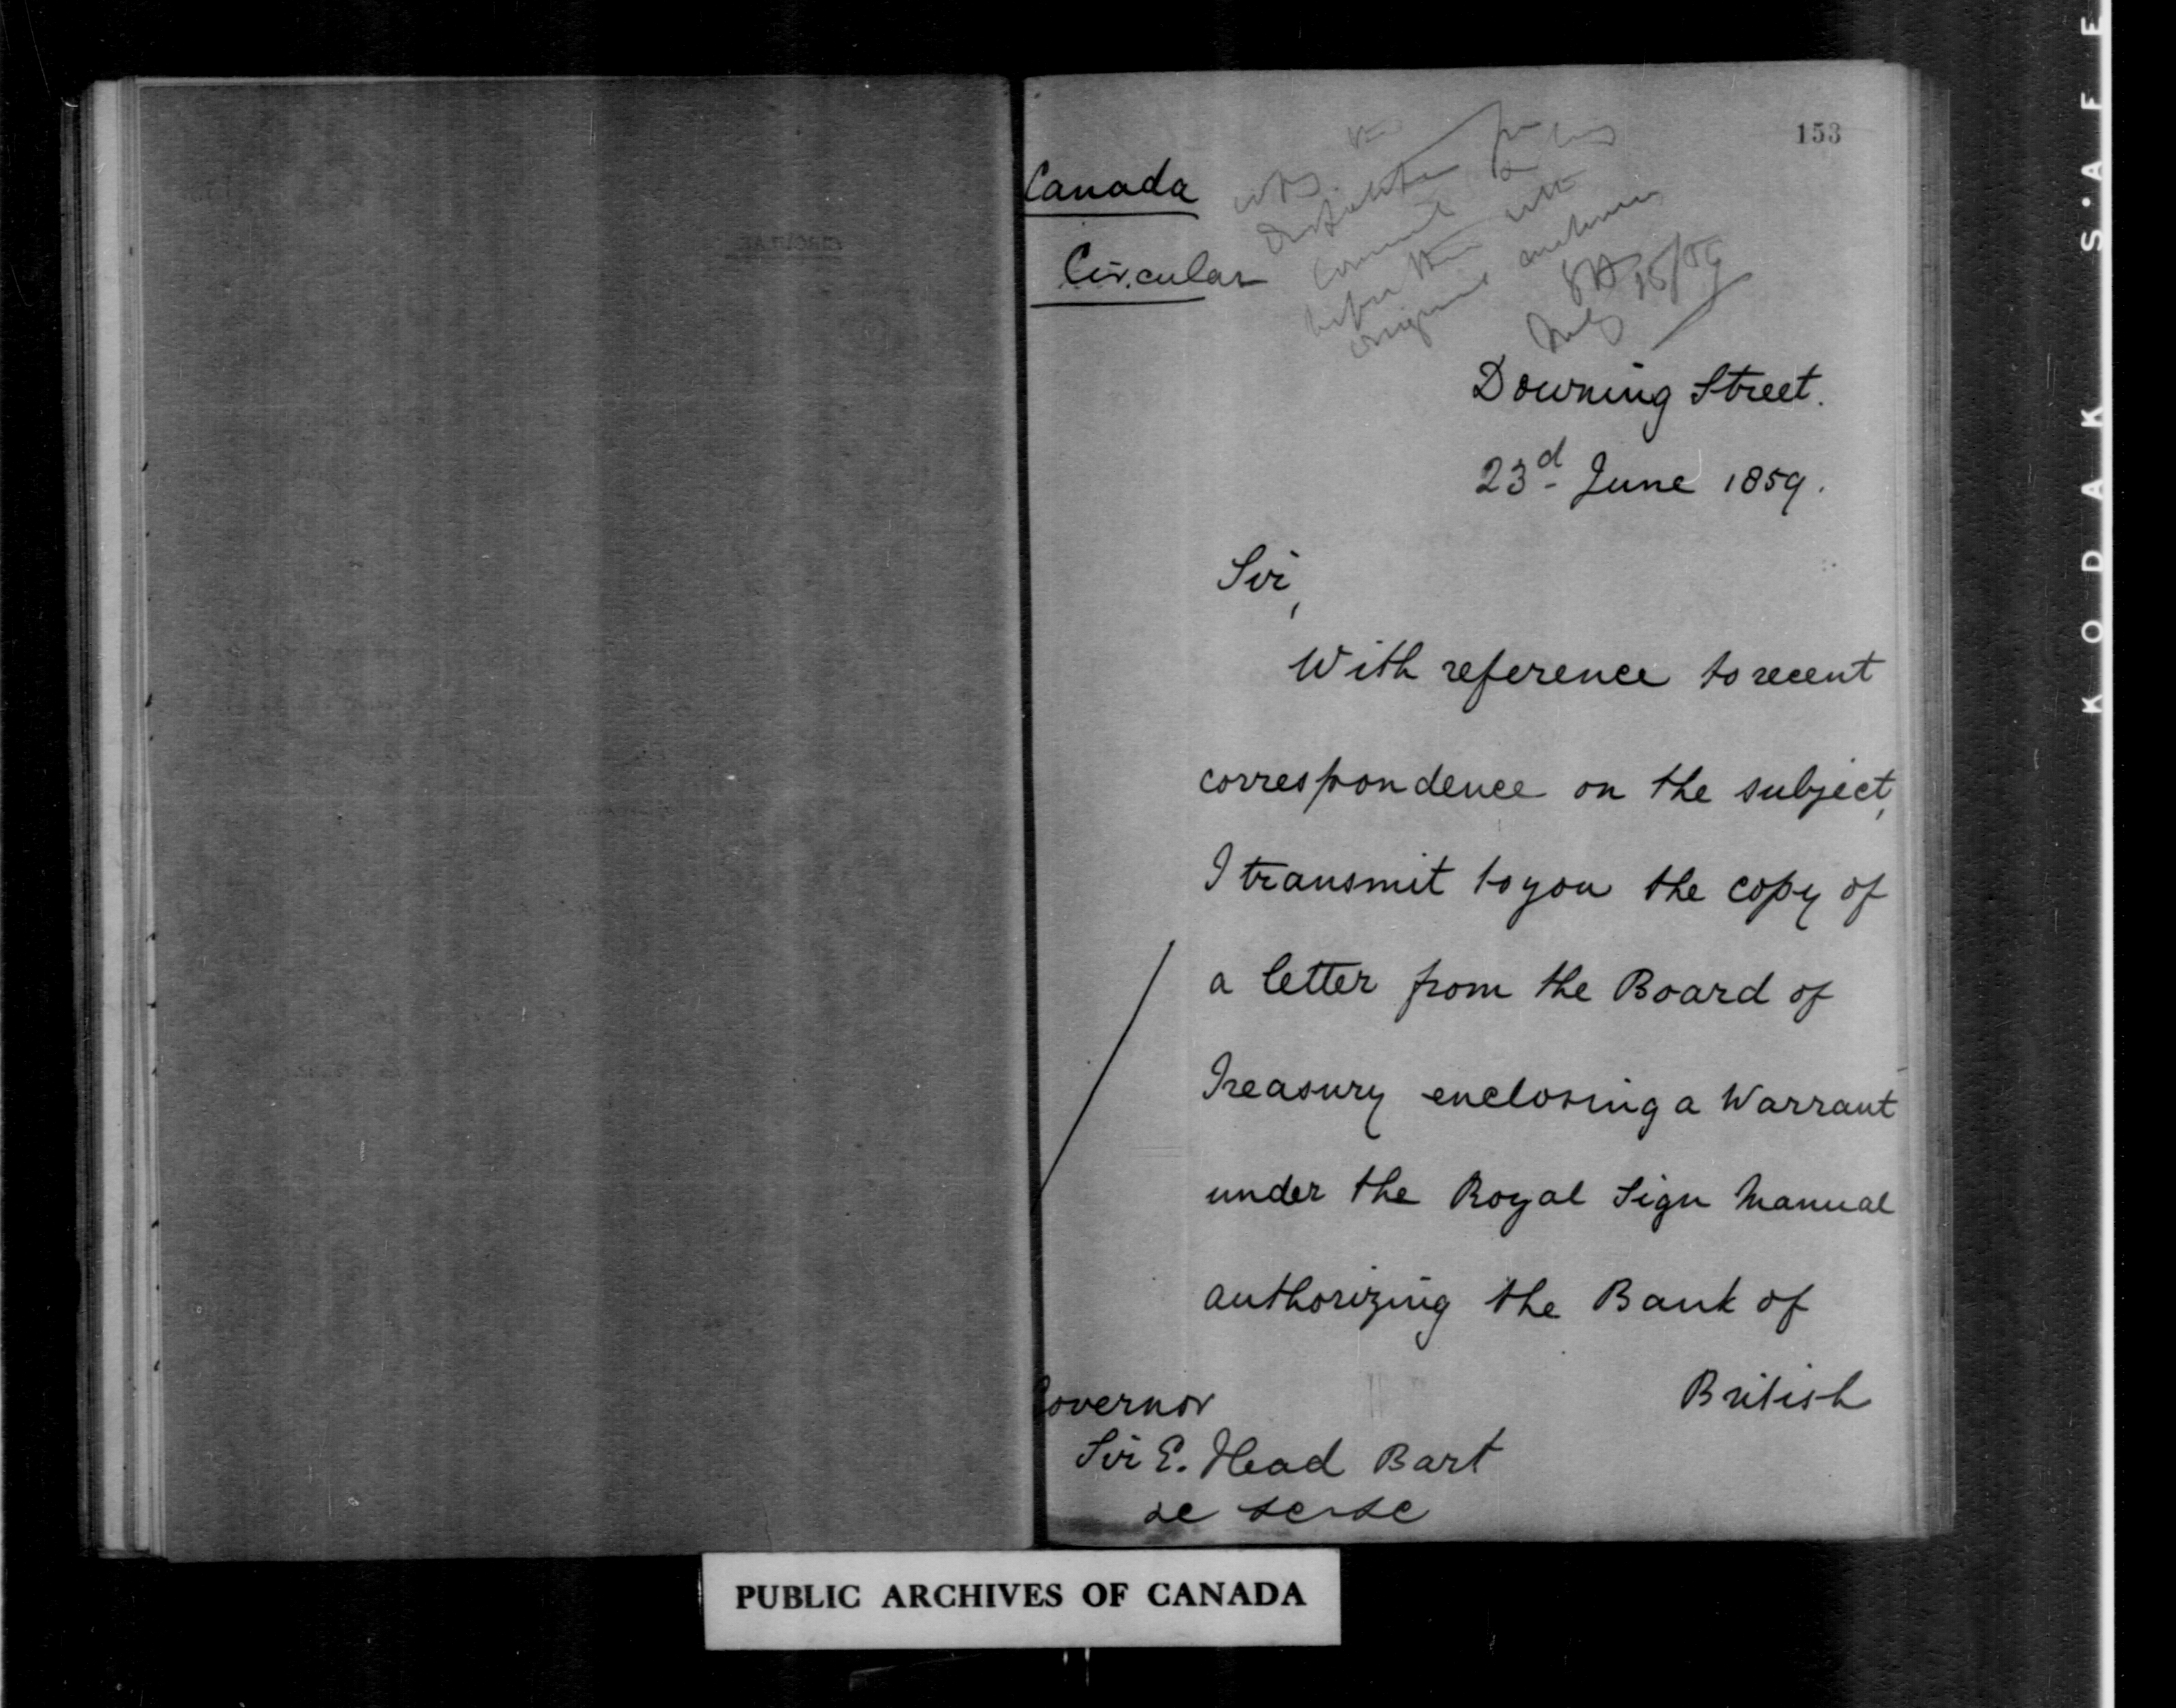 153
Canada
Circular
July 15/59
Downing Street.
23d June 1859.
Sir,
With reference to recent
correspondence on the subject,
I transmit to you the copy of
a letter from the Board of
Treasury enclosing a Warrant
under the Royal Sign Manual
authorizing the Bank of
British
Governor
Sir E. Head Bart
&c &c &c
PUBLIC ARCHIVES OF CANADA
KODAK S'AFE